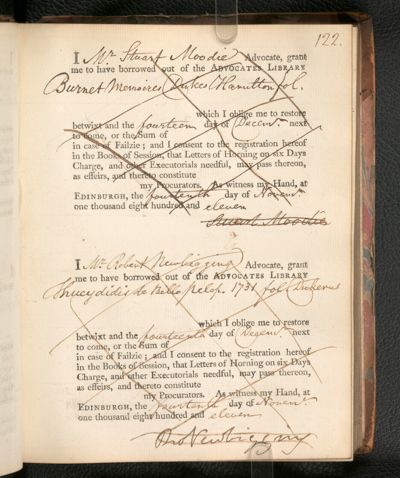 122.
I Mr. Stuart Moodie Advocate, grant
me to have borrowed out of the ADVOCATES LIBRARY
Burnet Memoires Dukes Hamilton fol.
which I oblige me to restore
betwixt and the fourteen day of Decemr. next
to come, or the Sum of
in case of Failzie; and I consent to the registration hereof
in the Books of Session, that Letters of Horning on six Days
Charge, and other Executorials needful, may pass thereon,
as effeirs, and thereto constitute
my Procurators. As witness my Hand, at
EDINBURGH, the fourteenth day of Novemr.
one thousand eight hundred and eleven
Stuart Moodie
I Mr. Robert Newbigging Advocate, grant
me to have borrowed out of the ADVOCATES LIBRARY
Thucydidis de Bello pelop. 1731 fol Dukerus
which I oblige me to restore
betwixt and the fourteenth day of Decemr. next
to come, or the Sum of
in case of Failzie; and I consent to the registration hereof
in the Books of Session, that Letters of Horning on six Days
Charge, and other Executorials needful, may pass thereon,
as effeirs, and thereto constitute
my Procurators. As witness my Hand, at
EDINBURGH, the fourteenth day of Novemr.
one thousand eight hundred and eleven
Newbigging